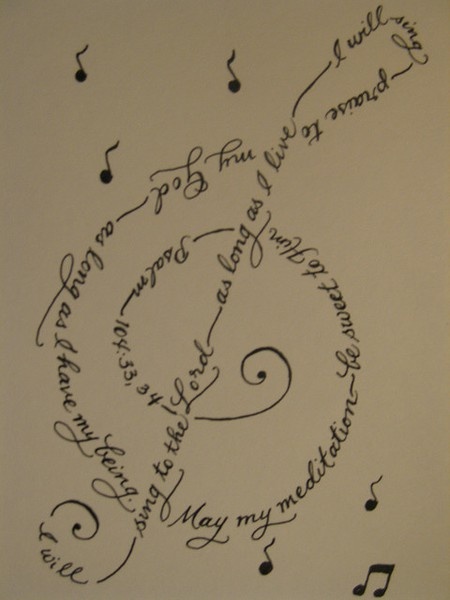 I will
sing to the Lord
as long as I live
I will sing
praise to
my God
as long as I have my being.
May my meditation
be sweet to Him
Psalm
104:33, 34